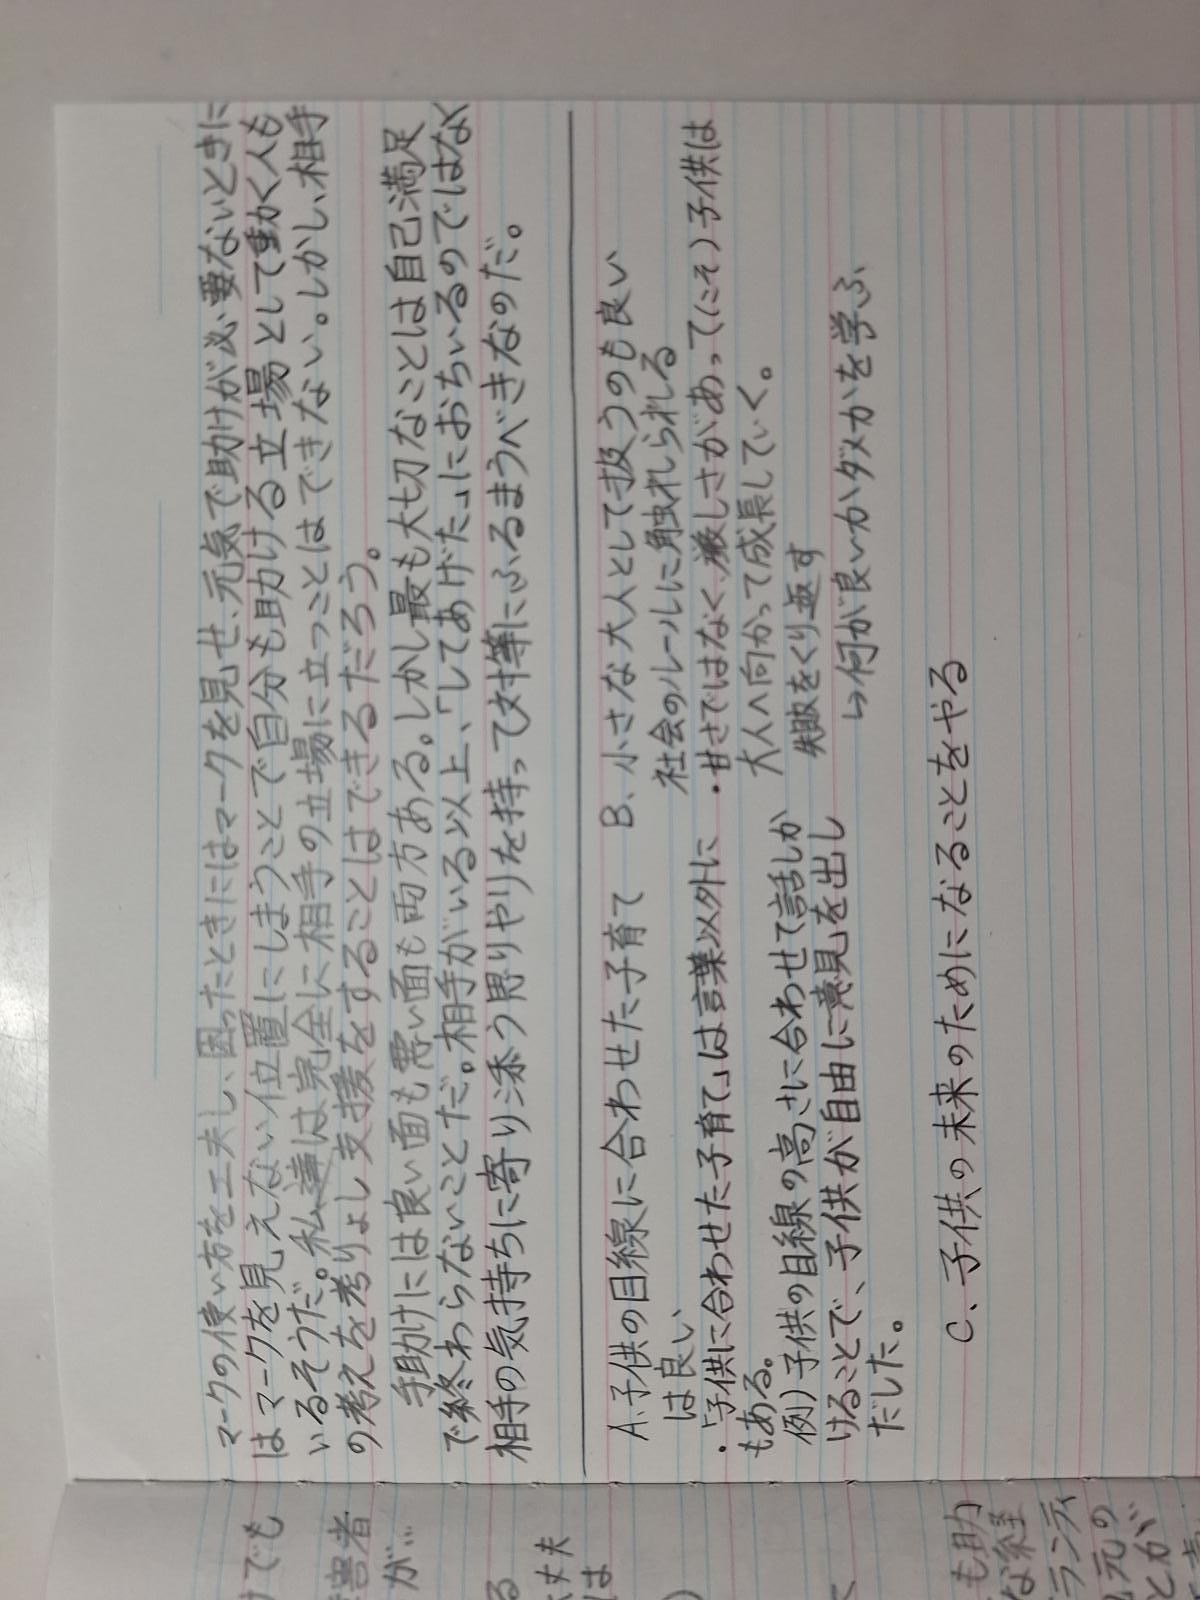 マークの使い方を工夫し、困ったときにはマークを見せ、元気で助けが必要ないときに
はマークを見えない位置にしまうことで自分も助ける立場として動く人も
いるそうだ。私達は完全に相手の立場に立つことはできない。しかし、相手
の考えを考りょし支援をすることはできるだろう。
手助けには良い面も悪い面も両方ある。しかし最も大切なことは自己満足
で終わらないことだ。相手がいる以上、「してあげた」におちいるのではなく
相手の気持ちに寄り添う思いやりを持って対等にふるまうべきなのだ。
A.子供の目線に合わせた子育て
は良い
・「子供に合わせた子育て」は言葉以外に
もある。
例)子供の目線の高さに合わせて話しか
けることで、子供が自由に意見を出し
だした。
B、小さな大人として扱うのも良い
社会のルールに触れられる
・甘さではなく、厳しさがあって(こそ)子供は
大人へ向かって成長していく。
失敗をくり返す
↳何が良いかダメかを学ぶ
C、子供の未来のためになることをやる
けでも
害者
が…
る
丈夫
は
も助
な経
ランティ
元の
とが